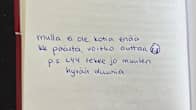 mulla ei ole kotia enää
kk päästä voitko auttaa
p.s L44 tekee jo muuten
hyvää duunia